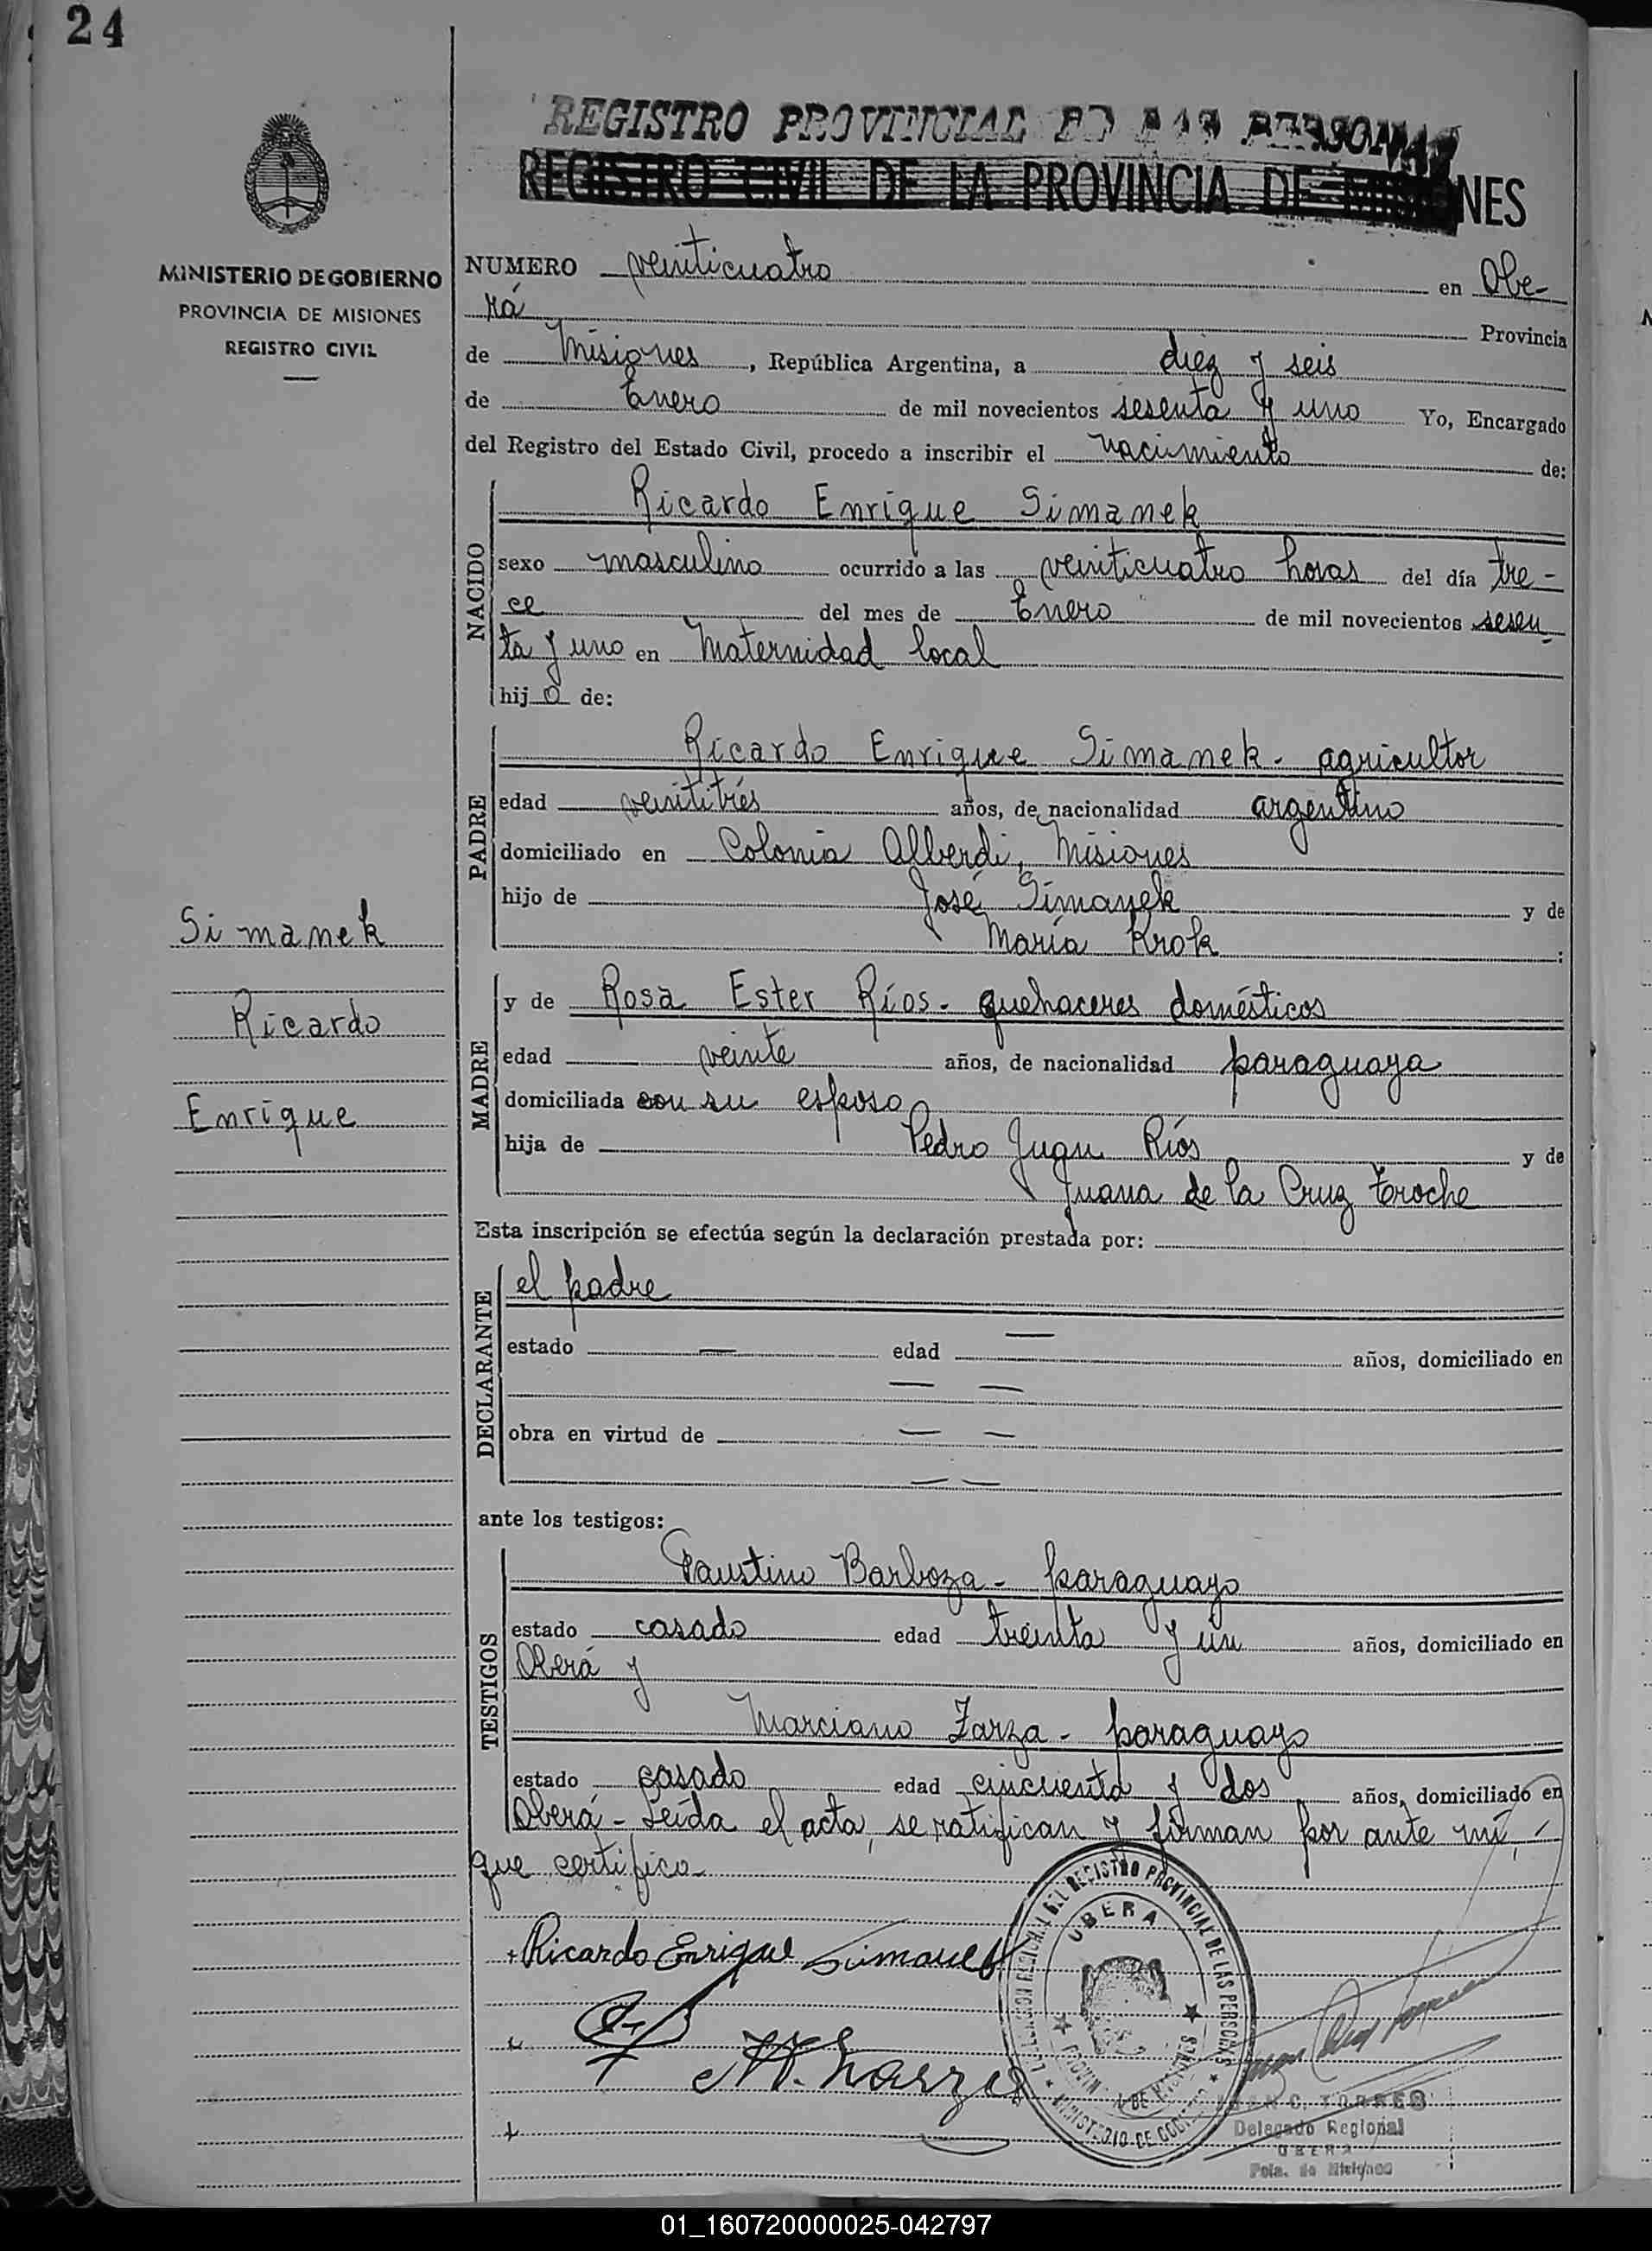 24
REGISTRO PROVINCIAL DE LAS PERSONAS
REGISTRO CIVIL DE LA PROVINCIA DE MISIONES
MINISTERIO DE GOBIERNO
PROVINCIA DE MISIONES
REGISTRO CIVIL
NUMERO veinticuatro en Obe-
rá Provincia
de Misiones, República Argentina, a diez y seis
de Enero de mil novecientos sesenta y uno Yo, Encargado
del Registro del Estado Civil, procedo a inscribir el nacimiento de:
NACIDO
Ricardo Enrique Simanek
sexo masculino ocurrido a las veinticuatro horas del día tre-
ce del mes de Enero de mil novecientos sesen
ta y uno en Maternidad local
hijo de:
PADRE
Ricardo Enrique Simanek - agricultor
edad veintitrés años, de nacionalidad argentino
domiciliado en Colonia Alberdi, Misiones
hijo de José Simanek y de
María Krok:
MADRE
y de Rosa Ester Ríos - quehaceres domésticos
edad veinte años, de nacionalidad paraguaya
domiciliada con su esposo
hija de Pedro Juan Ríos y de
Juana de la Cruz Troche
Esta inscripción se efectúa según la declaración prestada por:
DECLARANTE
el padre
estado — edad — años, domiciliado en
— —
obra en virtud de — —
— —
ante los testigos:
TESTIGOS
Faustino Barboza - paraguayo
estado casado edad treinta y un años, domiciliado en
Oberá y
Marciano Zarza - paraguayo
estado casado edad cincuenta y dos años, domiciliado en
Oberá - Leída el acta, se ratifican y firman por ante mí,
que certifico -
Simanek
Ricardo
Enrique
+ Ricardo Enrique Simanek
M. Zarza
DELEGACION REGIONAL DEL REGISTRO PROVINCIAL DE LAS PERSONAS
OBERA
PROVINCIA DE MISIONES
MINISTERIO DE GOBIERNO
JUAN C. TORRES
Delegado Regional
OBERA
Pcia. de Misiones
01_160720000025-042797